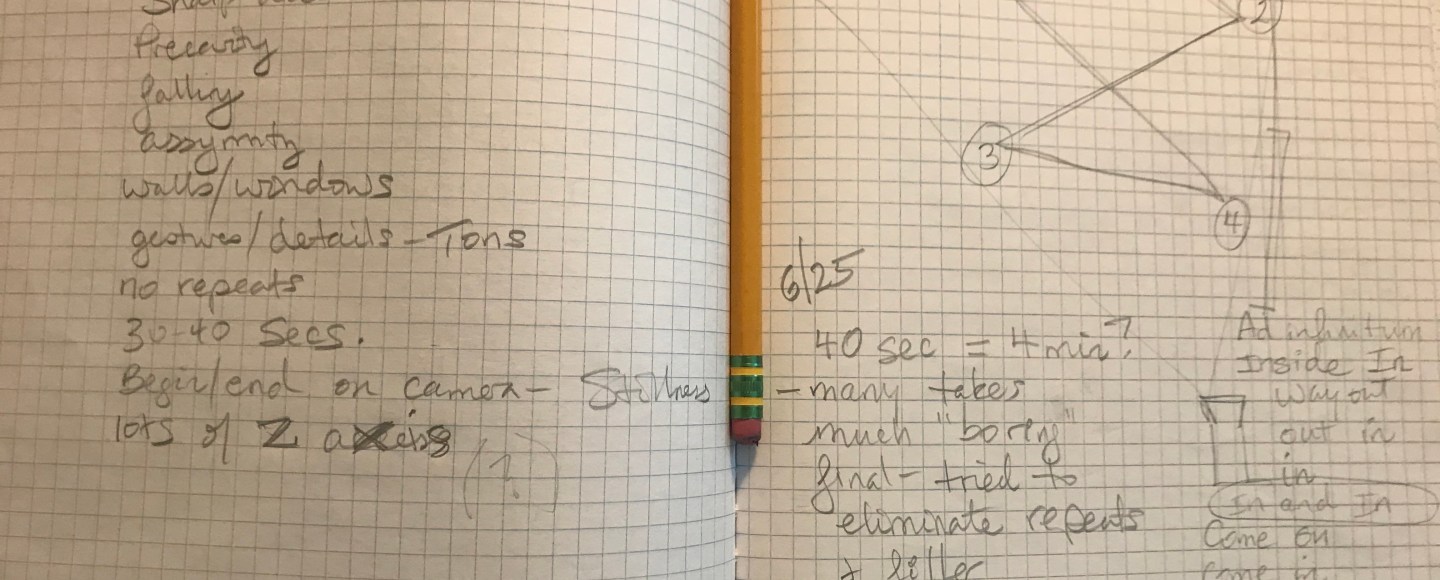 Precarity
falling
assymity
walls/windows
gestures/details - Tons
no repeats
30-40 Secs.
Begin/end on camera - Stillness
lots of Z axis
(?)
2
3
4
6/25
40 sec = 4 min?
- many takes
much "boring"
final - tried to
eliminate repeats
+ filler
Ad infinitum
Inside In
way out
out in
in
In and In
Come on
Come in